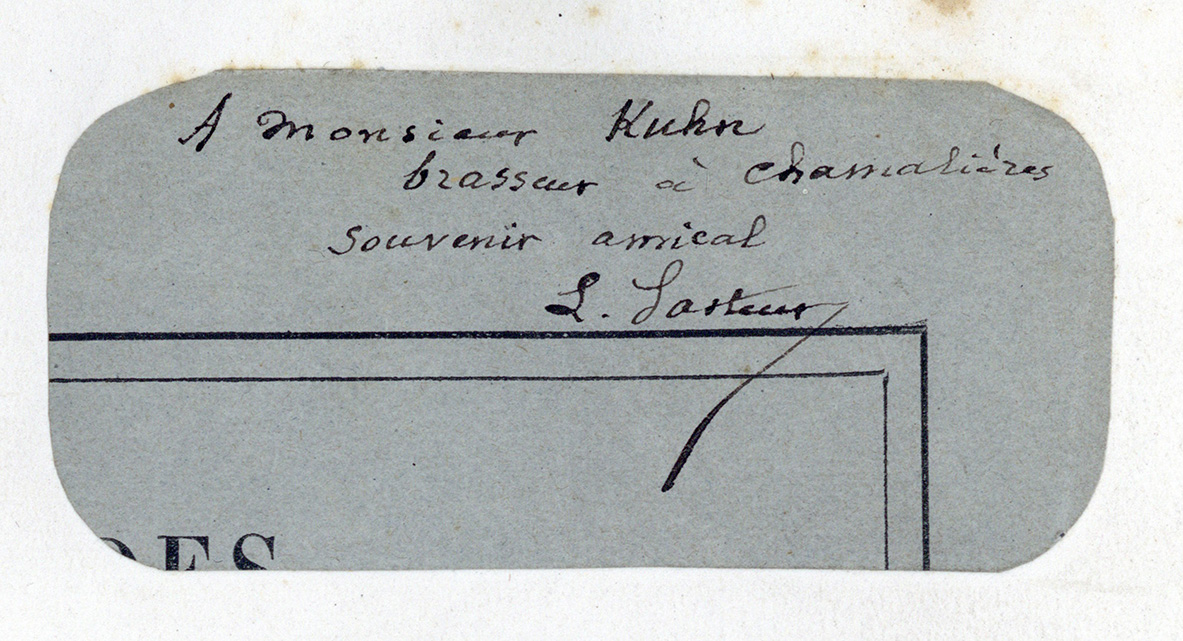 A Monsieur Kuhn
brasseur à chamalières
Souvenir amical
L. Pasteur
DES